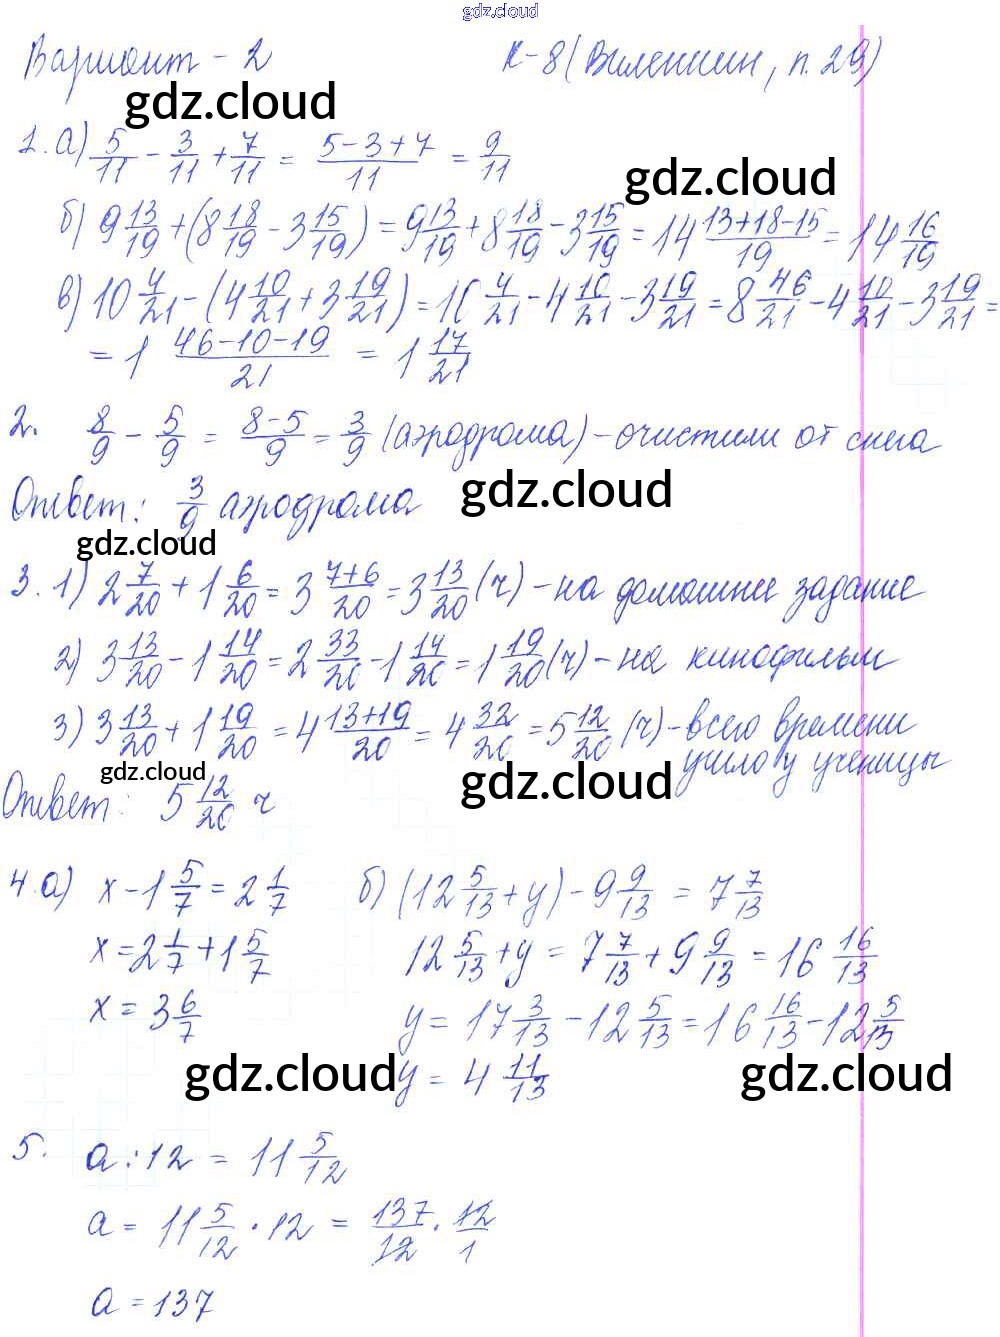 gdz.cloud
Вариант - 2 К-8 (Виленкин, п. 29)
gdz.cloud
1. а) 5/11 - 3/11 + 7/11 = (5-3+7)/11 = 9/11
gdz.cloud
б) 9 13/19 + (8 18/19 - 3 15/19) = 9 13/19 + 8 18/19 - 3 15/19 = 14 (13+18-15)/19 = 14 16/19
в) 10 4/21 - (4 10/21 + 3 19/21) = 10 4/21 - 4 10/21 - 3 19/21 = 8 46/21 - 4 10/21 - 3 19/21 =
= 1 (46-10-19)/21 = 1 17/21
2. 8/9 - 5/9 = (8-5)/9 = 3/9 (аэродрома) - очистили от снега
gdz.cloud
Ответ: 3/9 аэродрома
gdz.cloud
3. 1) 2 7/20 + 1 6/20 = 3 (7+6)/20 = 3 13/20 (ч) - на домашнее задание
2) 3 13/20 - 1 14/20 = 2 33/20 - 1 14/20 = 1 19/20 (ч) - на кинофильм
3) 3 13/20 + 1 19/20 = 4 (13+19)/20 = 4 32/20 = 5 12/20 (ч) - всего времени
ушло у ученицы
gdz.cloud
gdz.cloud
Ответ: 5 12/20 ч
4. а) x - 1 5/7 = 2 1/7 б) (12 5/13 + y) - 9 9/13 = 7 7/13
x = 2 1/7 + 1 5/7 12 5/13 + y = 7 7/13 + 9 9/13 = 16 16/13
x = 3 6/7 y = 17 3/13 - 12 5/13 = 16 16/13 - 12 5/13
gdz.cloud y = 4 11/13 gdz.cloud
5. a : 12 = 11 5/12
a = 11 5/12 · 12 = 137/12 · 12/1
a = 137